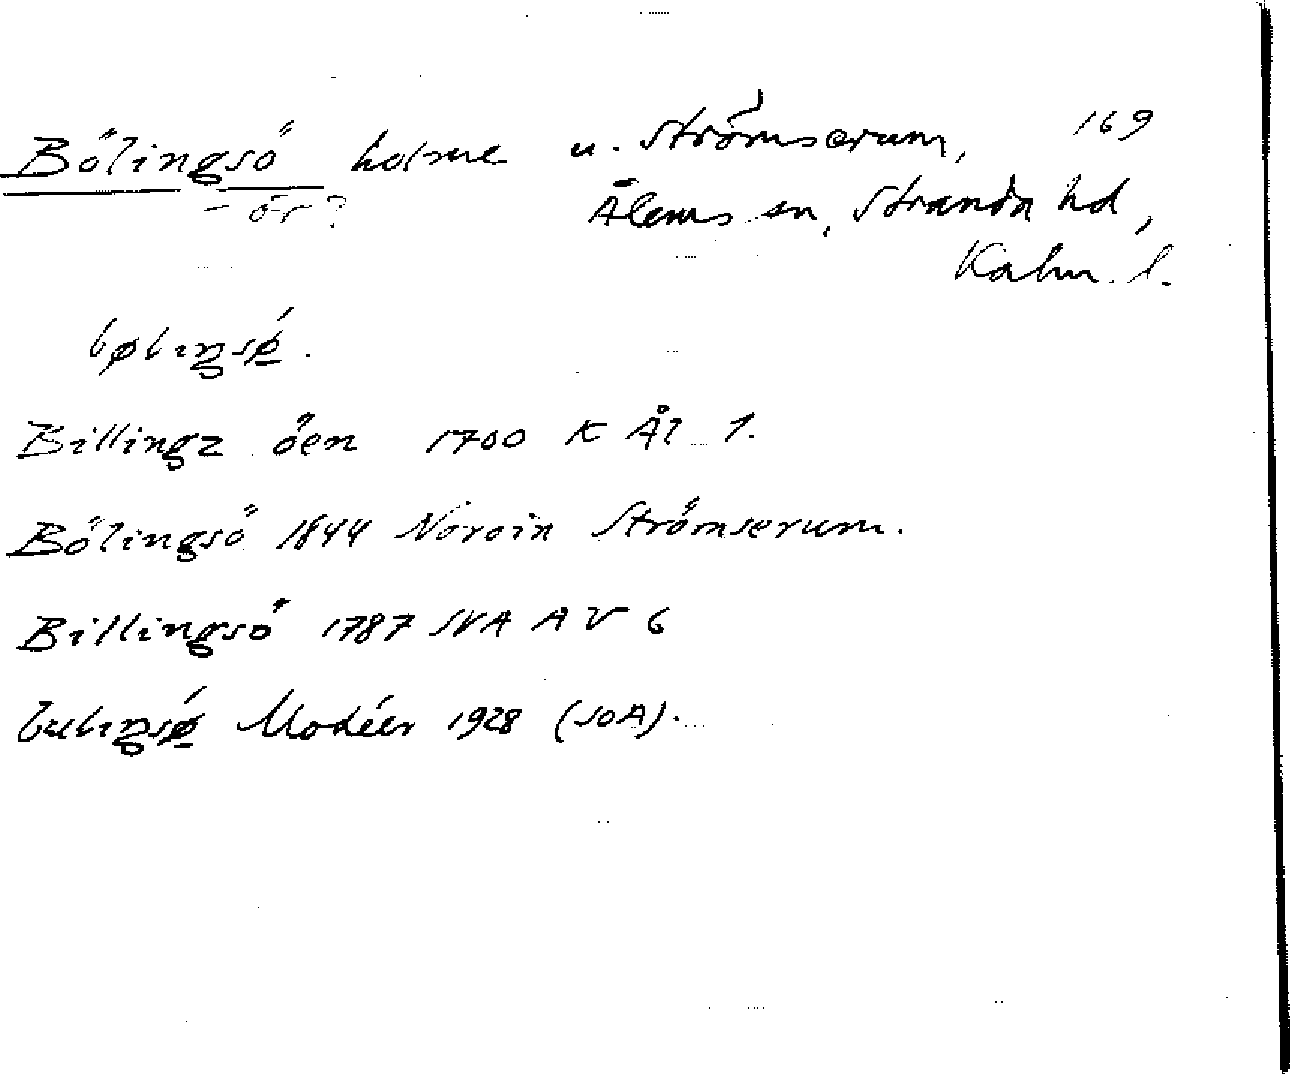 Bölingsö holme u. Strömserum, 169
- ör?
Ålems sn, Stranda hd,
Kalm. l.
bøliŋsø.
Billingz öen 1700 K Ål 1.
Bölingsö 1844 Strömserum.
Billingsö 1787 A V 6
Modéer 1928 (SOA).